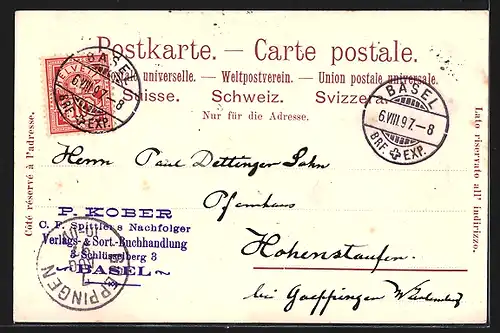 Postkarte. — Carte postale.
postale universelle. — Weltpostverein. — Union postale universale.
Suisse. Schweiz. Svizzera.
Nur für die Adresse.
HELVETIA
BASEL
6.VIII.97.–8
BRF. EXP.
BASEL
6.VIII.97.–8
BRF. EXP.
Côté réservé à l'adresse.
Lato riservato all' indirizzo.
Herrn Paul Dettinger Sohn
Hohenstaufen
bei Goeppingen Württemberg
P. KOBER
C. F. Spittlers Nachfolger
Verlags- & Sort.-Buchhandlung
3 Schlüsselberg 3
BASEL
GOEPPINGEN
7 AUG